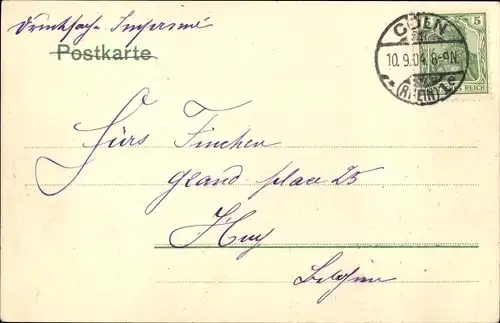 Drucksache Imprimé
Postkarte
5
CÖLN
10.9.04.8-9N.
(RHEIN) 1c
REICH
Fürs Finchen
Grand place 25
Huy
Belgien